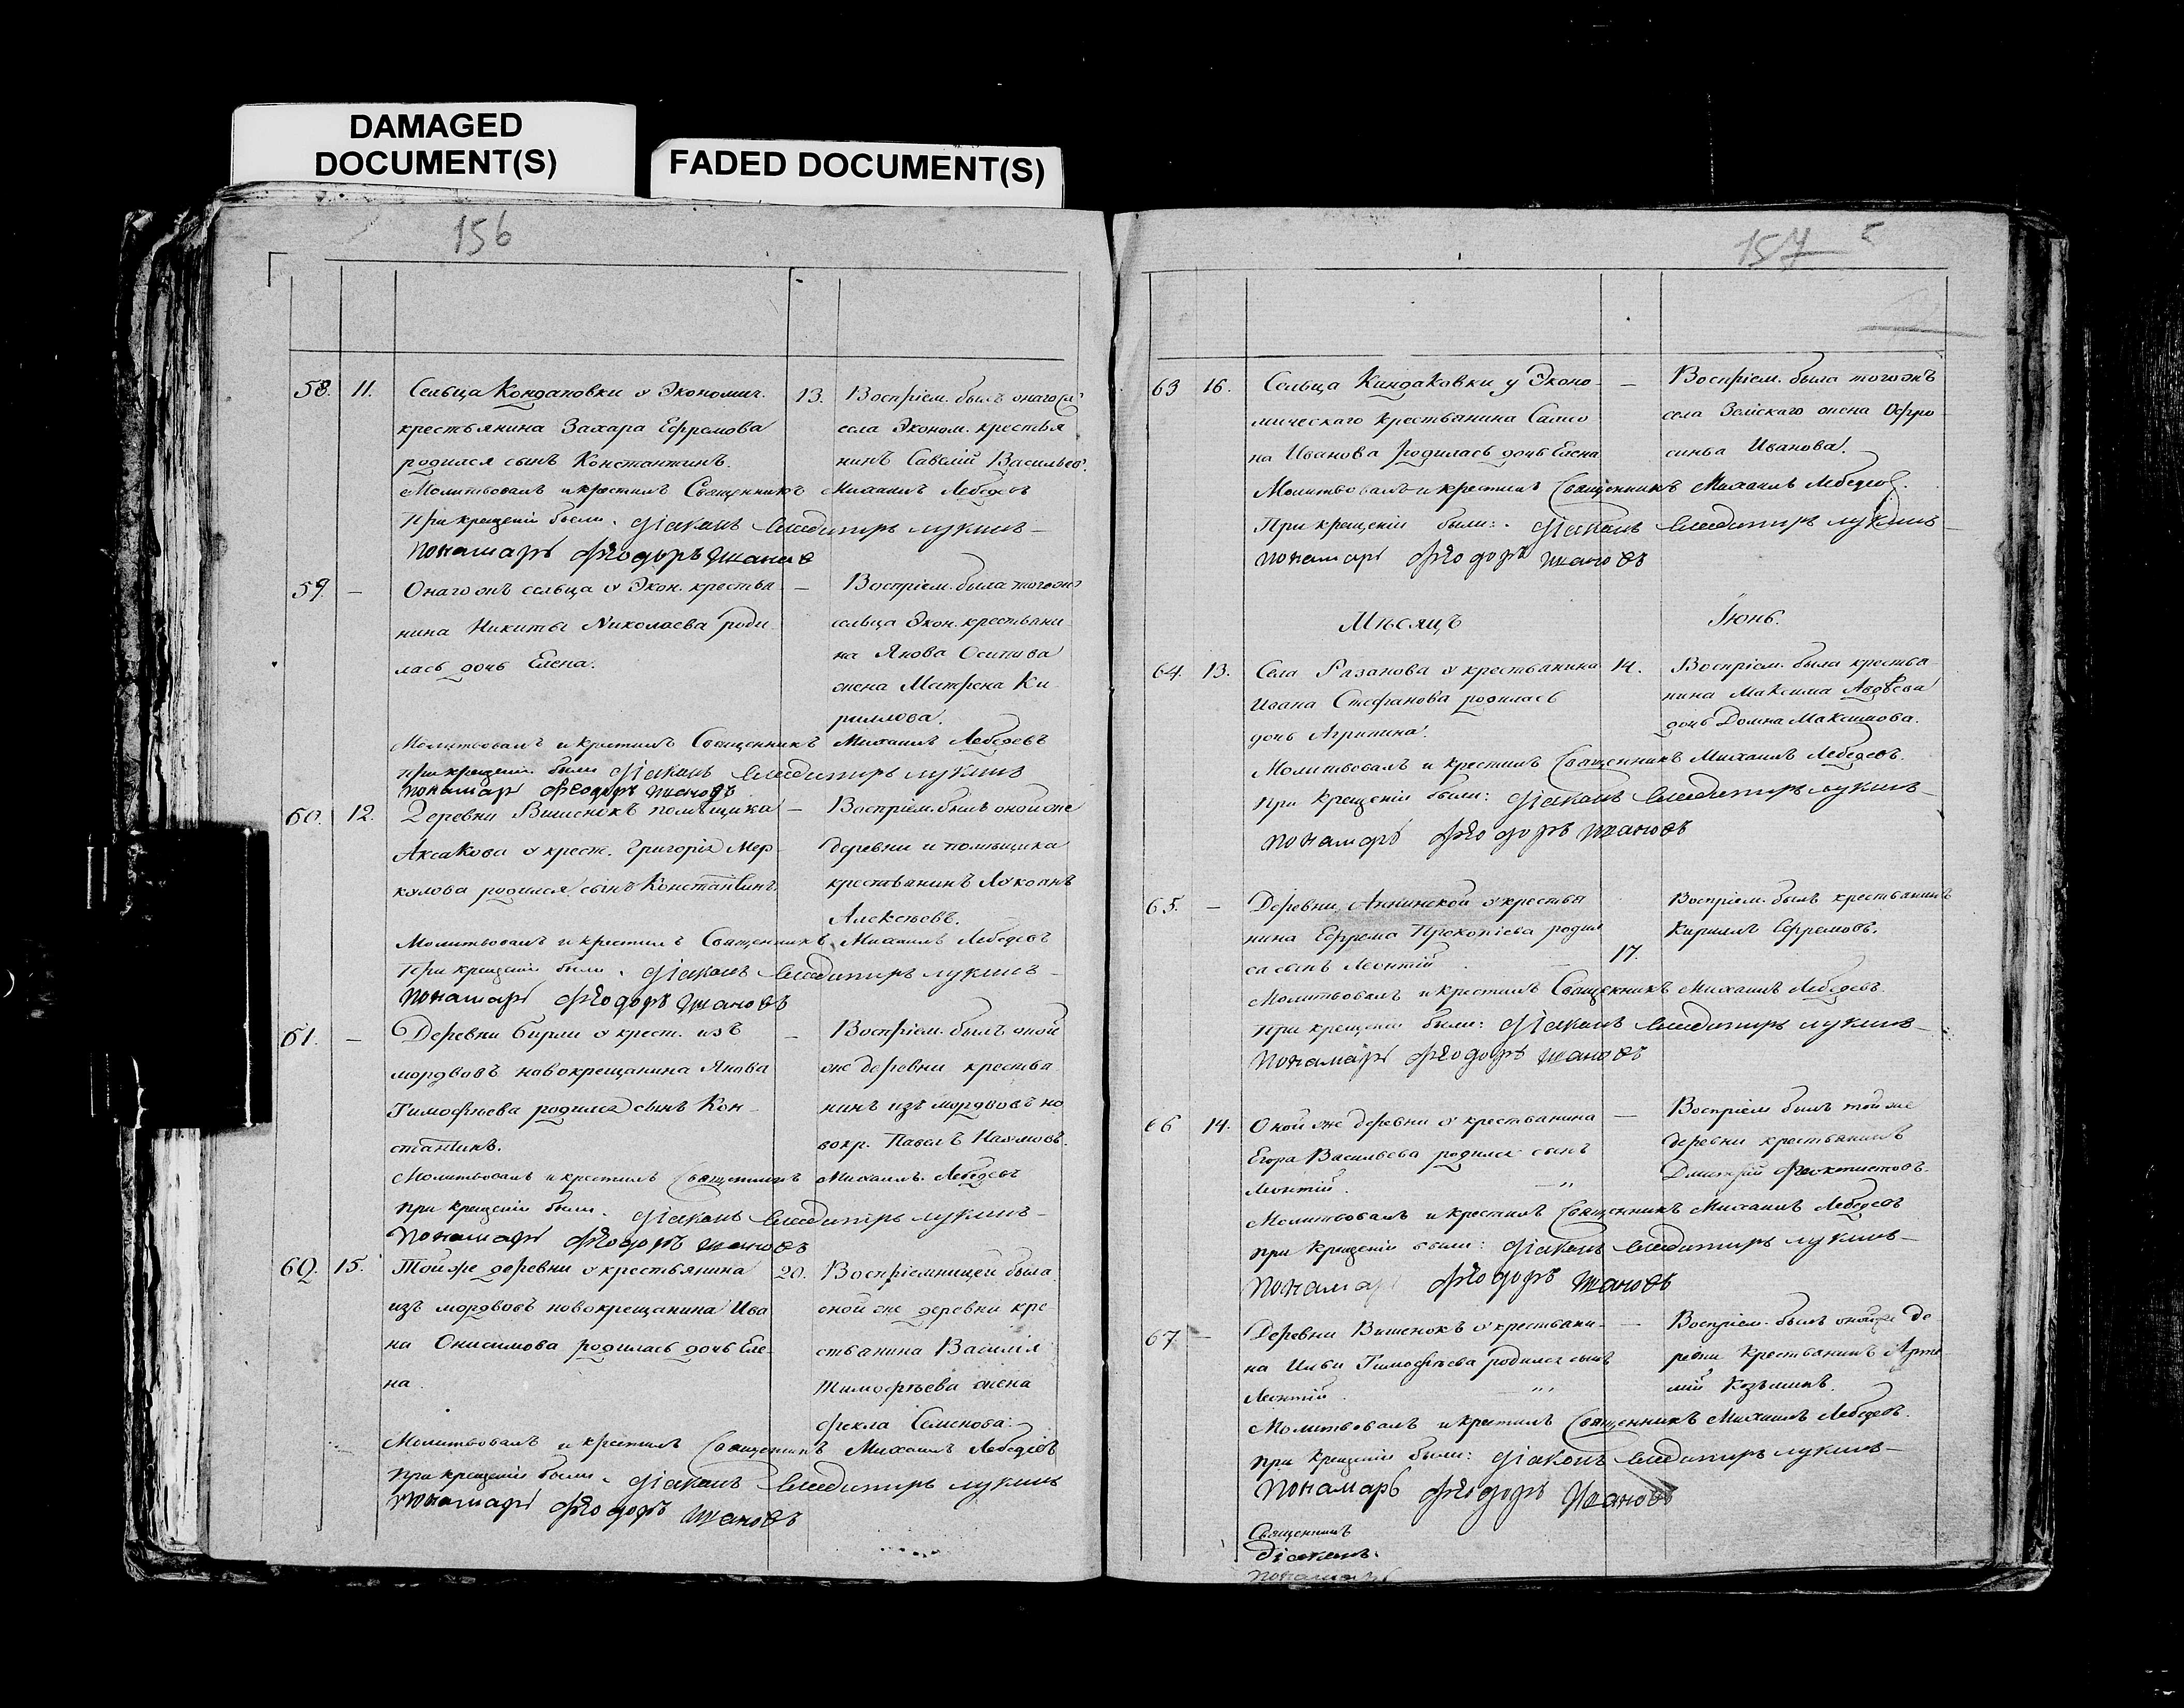 DAMAGED
DOCUMENT(S)
FADED DOCUMENT(S)
156
58. 11. Сельца Кондаковки у Экономич.
крестьянина Захара Ефремова
родился сынъ Константинъ.
13. Воспріем. былъ онаго
села Эконом. крестья
нинъ Савелій Васильев.
Молитвовалъ и крестилъ Священникъ Михаилъ Лебедевъ
При крещеніи были. Діаконъ Владимиръ Лукинъ
пономарь Ѳеодоръ Ивановъ
59. — Онагожъ сельца у Экон. крестья
нина Никиты Николаева роди
лась дочь Елена.
— Воспріем. была тогожъ
сельца Экон. крестьяни
на Якова Осипова
жена Матрена Ки
риллова.
Молитвовалъ и крестилъ Священникъ Михаилъ Лебедевъ
При крещеніи были Діаконъ Владимиръ Лукинъ
пономарь Ѳеодоръ Ивановъ
60. 12. Деревни Вишенокъ помѣщика
Аксакова у крест. Григорія Мер
кулова родился сынъ Константинъ.
— Воспріем. былъ оной же
деревни и помѣщика
крестьянинъ Лукоянъ
Алексѣевъ.
Молитвовалъ и крестилъ Священникъ Михаилъ Лебедевъ
При крещеніи были. Діаконъ Владимиръ Лукинъ
пономарь Ѳеодоръ Ивановъ
61. — Деревни Бирли у крест. изъ
мордвовъ новокрещанина Якова
Тимофѣева родился сынъ Кон
стантинъ.
— Воспріем. былъ оной
же деревни крестья
нинъ изъ мордвовъ но
вокр. Павелъ Наумовъ.
Молитвовалъ и крестилъ Священникъ Михаилъ Лебедевъ
При крещеніи были. Діаконъ Владимиръ Лукинъ
пономарь Ѳеодоръ Ивановъ
62. 15. Тойже деревни у крестьянина
изъ мордвовъ новокрещанина Ива
на Онисимова родилась дочь Еле
на.
20. Воспріемницей была
оной же деревни кре
стьянина Василія
Тимофѣева жена
Фекла Семенова.
Молитвовалъ и крестилъ Священникъ Михаилъ Лебедевъ
При крещеніи были. Діаконъ Владимиръ Лукинъ
пономарь Ѳеодоръ Ивановъ
157
63 16. Сельца Киндаковки у Эконо
мическаго крестьянина Самсо
на Иванова родилась дочь Елена
— Воспріем. была тогожъ
села Земскаго жена Офро
синья Иванова.
Молитвовалъ и крестилъ Священникъ Михаилъ Лебедевъ.
При крещеніи были: Діаконъ Владимиръ Лукинъ
пономарь Ѳеодоръ Ивановъ
Мѣсяцъ Іюнь.
64. 13. Села Разанова у крестьянина
Ивана Стефанова родилась
дочь Агрипина.
14. Воспріем. была крестья
нина Максима Авдѣева
дочь Домна Максимова.
Молитвовалъ и крестилъ Священникъ Михаилъ Лебедевъ.
При крещеніи были: Діаконъ Владимиръ Лукинъ
пономарь Ѳеодоръ Ивановъ
65. — Деревни у крестья
нина Ефрема Прокопіева родил
ся сынъ Леонтій
17.
Воспріем. былъ крестьянинъ
Кириллъ Ефремовъ.
Молитвовалъ и крестилъ Священникъ Михаилъ Лебедевъ.
При крещеніи были: Діаконъ Владимиръ Лукинъ
пономарь Ѳеодоръ Ивановъ
66 14. Оной же деревни у крестьянина
Егора Васильева родился сынъ
Леонтій.
— Воспріем былъ той же
деревни крестьянинъ
Дмитрій Феоктистовъ.
Молитвовалъ и крестилъ Священникъ Михаилъ Лебедевъ
При крещеніи были: Діаконъ Владимиръ Лукинъ
пономарь Ѳеодоръ Ивановъ
67. — Деревни Вишенокъ у крестьяни
на Ильи Тимофѣева родился сынъ
Леонтій.
— Воспріем. былъ онойже де
ревни крестьянинъ Арте
мій Козьминъ.
Молитвовалъ и крестилъ Священникъ Михаилъ Лебедевъ.
При крещеніи были: Діаконъ Владимиръ Лукинъ
пономарь Ѳеодоръ Ивановъ
Священникъ
Діаконъ.
пономарь